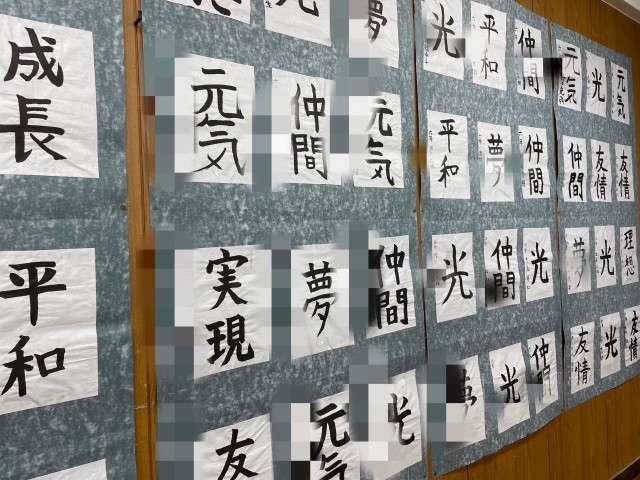 成長
平和
光
夢
元気
仲間
元気
実現
夢
仲間
友
元気
光
光
平和
仲間
平和
夢
仲間
光
仲間
光
光
仲
元気
光
元気
仲間
友情
友情
夢
光
理想
友情
光
友情